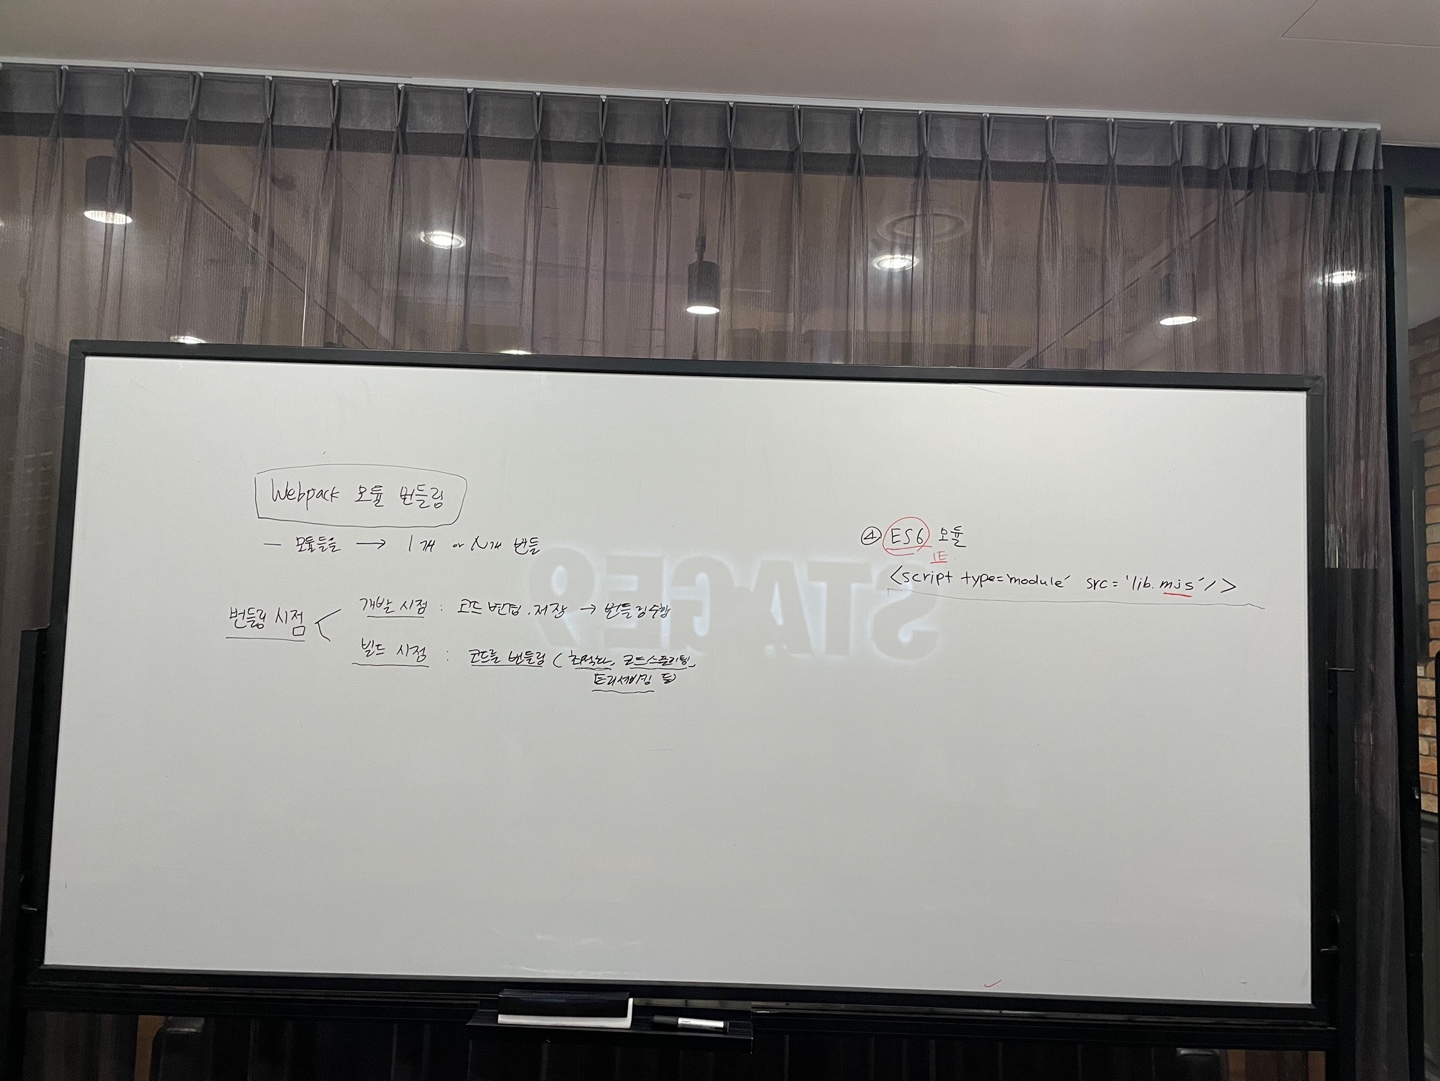 Webpack 모듈 번들링
— 모듈들을 → 1개 or N개 번들
번들링 시점
개발 시점 : 코드 변경, 저장 → 번들링 수행
빌드 시점 : 코드를 번들링 ( 최적화, 코드스플리팅,
트리셰이킹 등)
④ ES6 모듈
IE
<script type='module' src='lib.mjs'/>
STAGE9